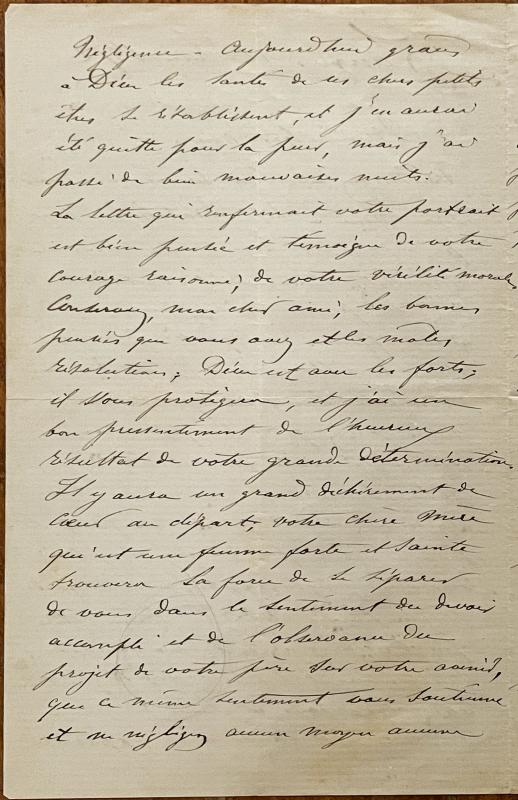 négligence - aujourd'hui grâces
à Dieu les santés de ces chers petits
êtres se rétablissent, et j'en aurai
été quitte pour la peur, mais j'ai
passé de bien mauvaises nuits.
La lettre qui renfermait votre portrait
est bien pensée et témoigne de votre
courage raisonné, de votre virilité morale
Conservez, mon cher ami, les bonnes
pensées que vous avez et les mâles
résolutions; Dieu est avec les forts;
il vous protégera, et j'ai un
bon pressentiment de l'heureux
résultat de votre grande détermination.
Il y aura un grand déchirement de
cœur au départ, votre chère mère
qui est une femme forte et sainte
trouvera la force de se séparer
de vous dans le sentiment du devoir
accompli et de l'observance du
projet de votre père sur votre avenir,
que ce même sentiment vous soutienne
et ne négligez aucun moyen aucune